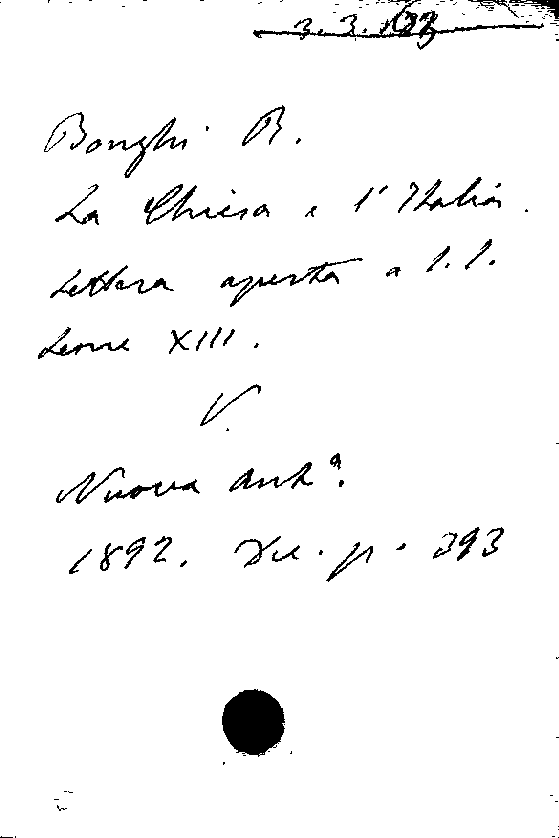 3.3.
Bonghi R.
La Chiesa e l'Italia.
Lettera aperta a
Leone XIII.
V.
Nuova Ant.ª
1892. Dic. p. 393